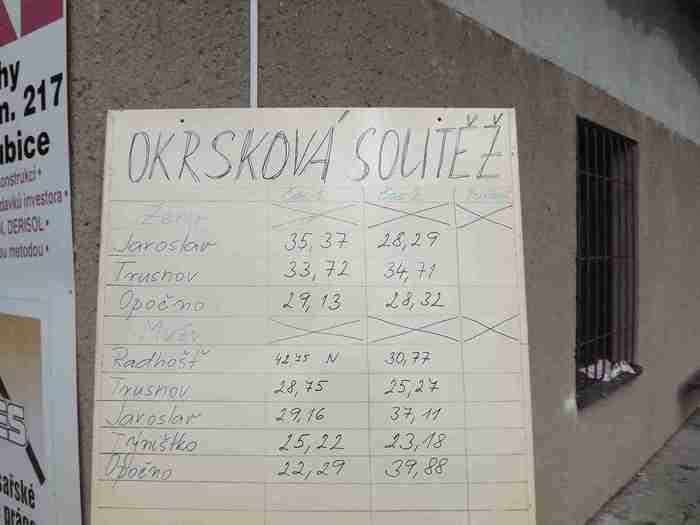 hy
m. 217
ubice
konstrukcí •
davků investora •
, DERISOL •
ou metodou •
OKRSKOVÁ SOUTĚŽ
Čas 1. Čas 2.
Ženy
Jaroslav 35,37 28,29
Trusnov 33,72 34,71
Opočno 29,13 28,32
Muži
Radhošť 42,75 N 30,77
Trusnov 28,75 25,27
Jaroslav 29,16 37,11
Týništko 25,22 23,18
Opočno 22,29 39,88
ES
sařské
práce